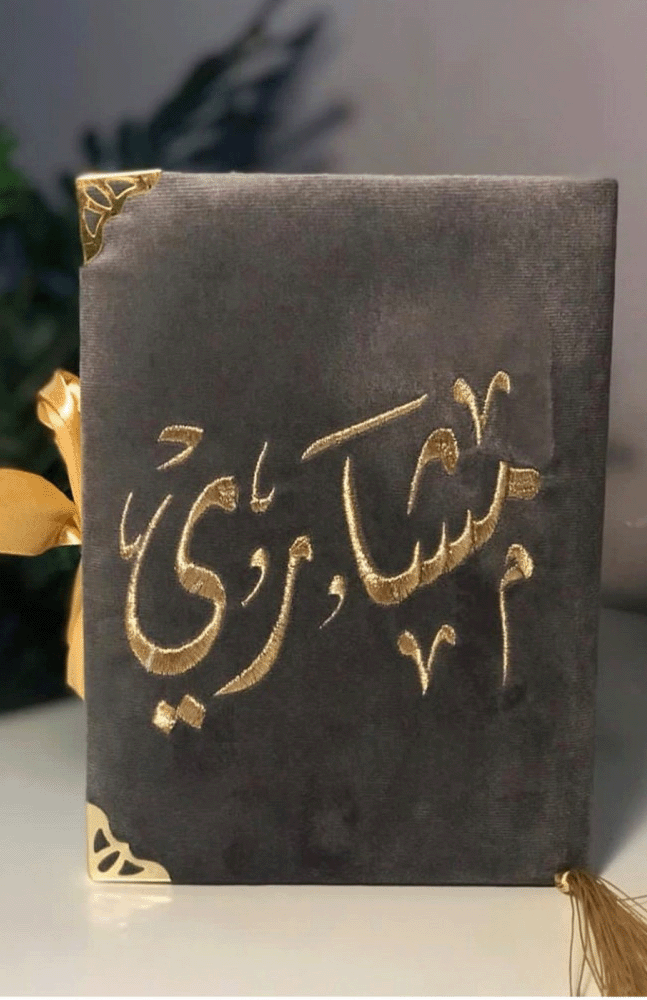 مشاري